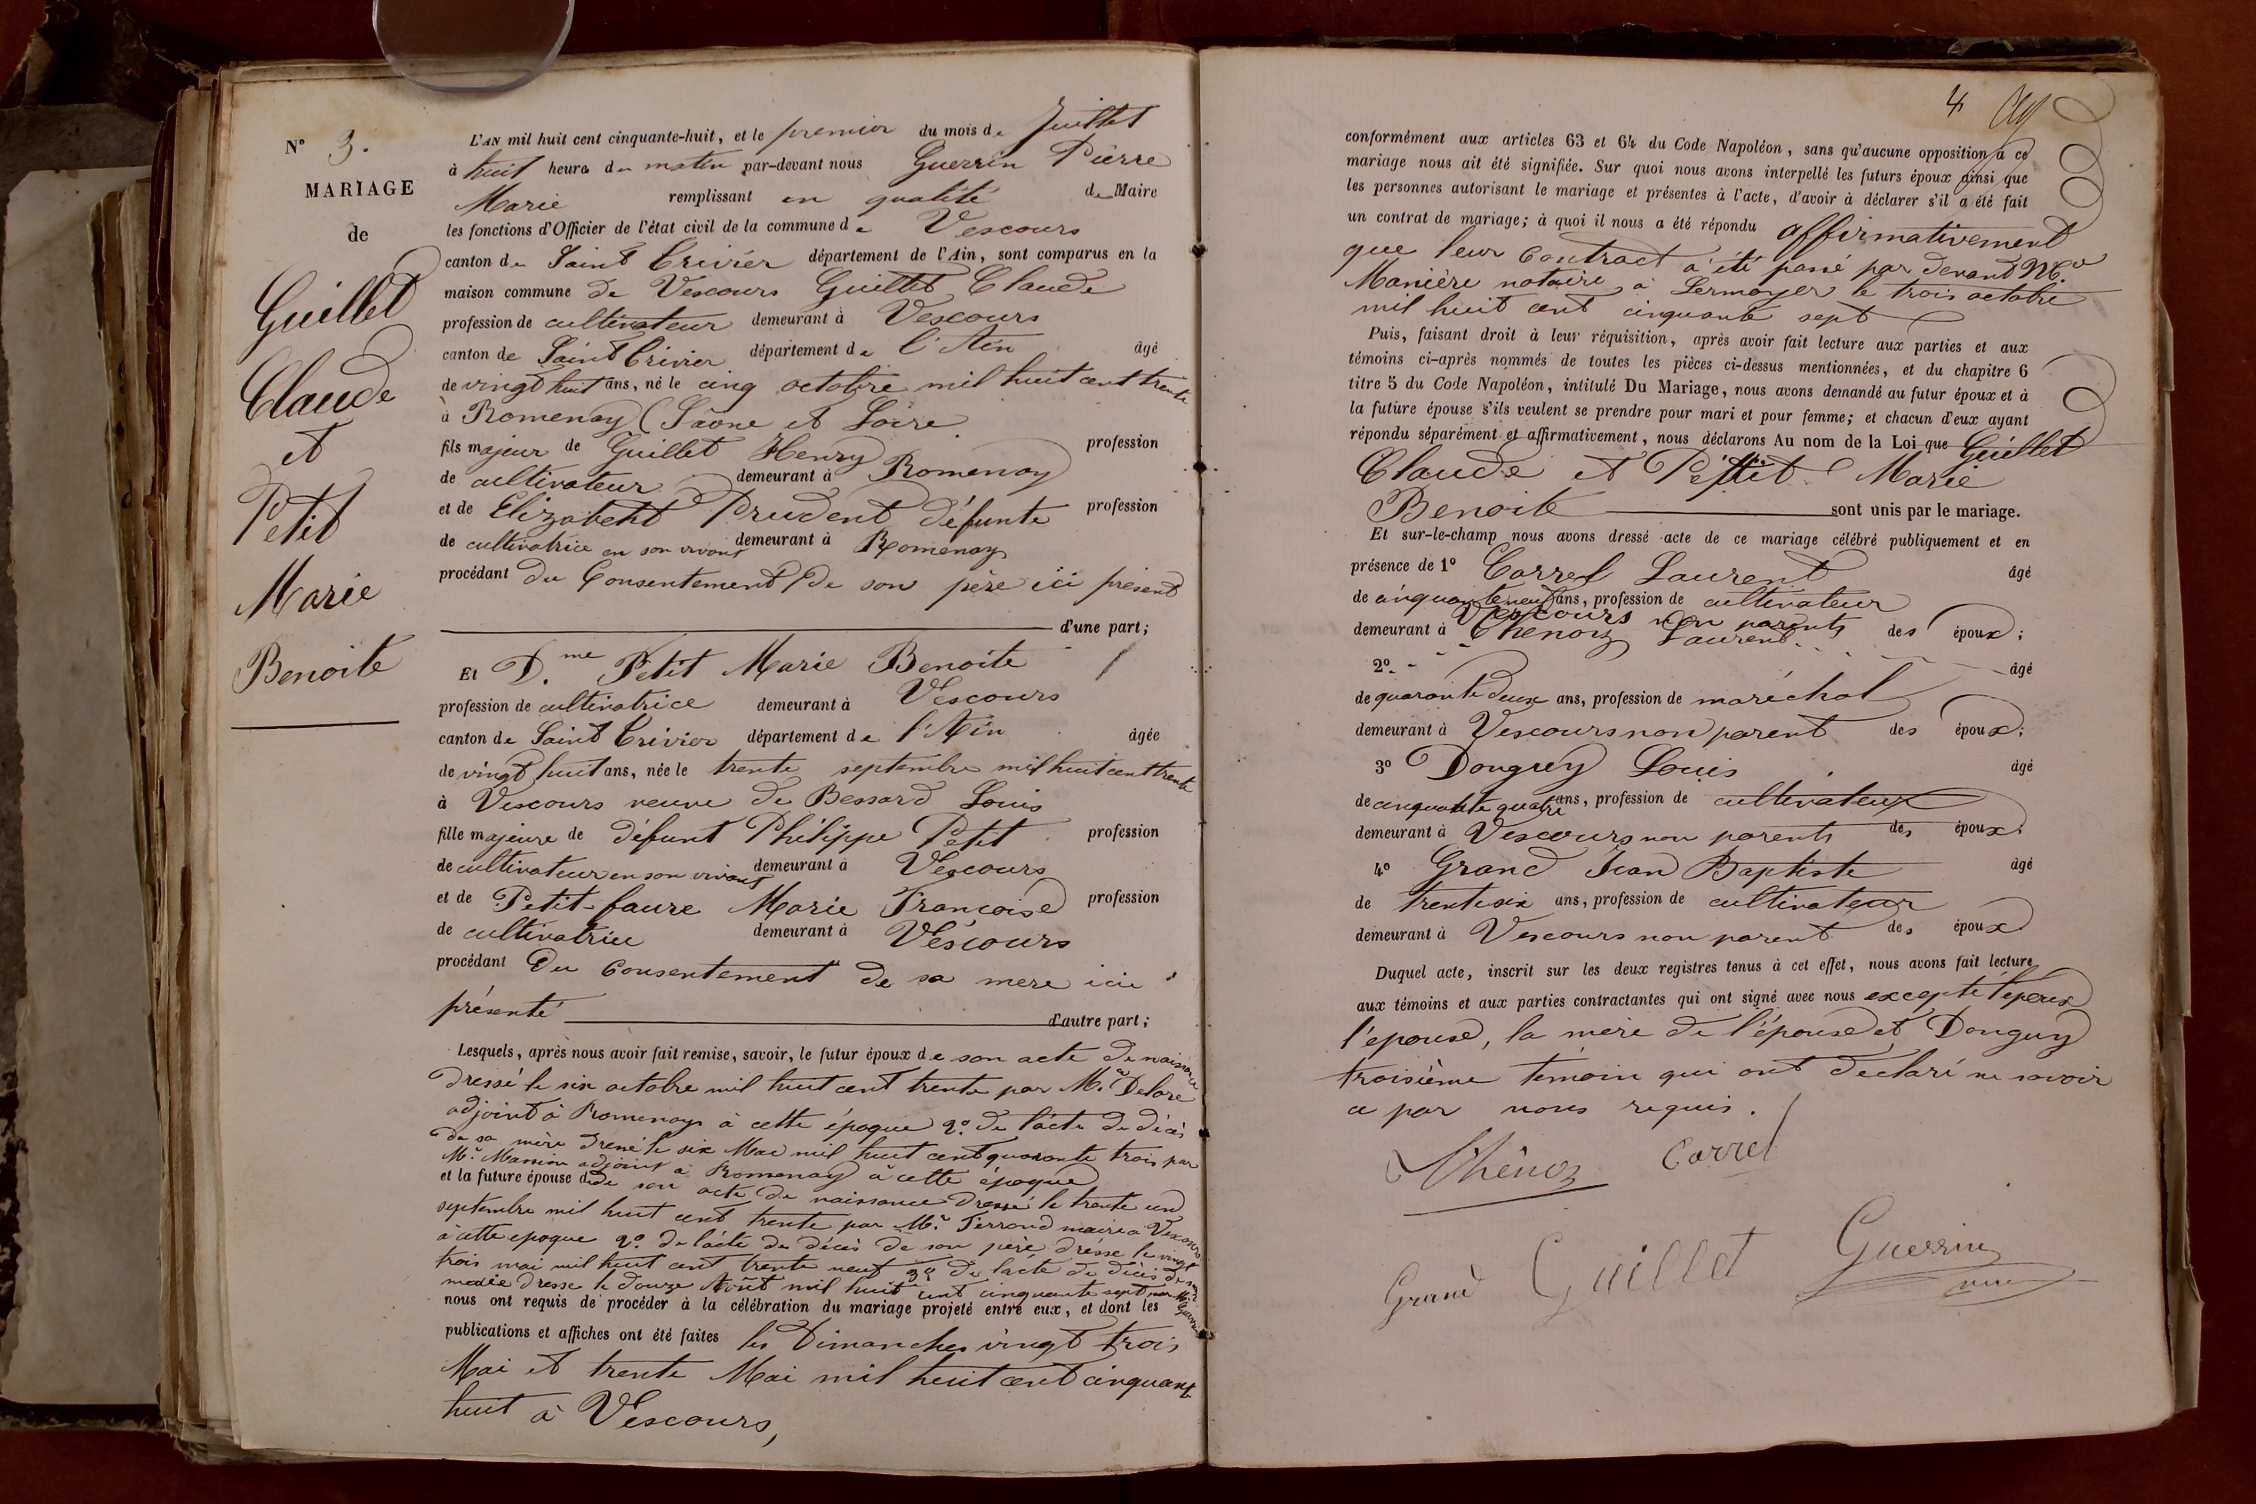 N° 3.
MARIAGE
de
Guillet
Claude
et
Petit
Marie
Benoite
L'AN mil huit cent cinquante-huit, et le premier du mois de Juillet
à huit heure du matin par-devant nous Guerrin Pierre
Marie remplissant en qualité de Maire
les fonctions d'Officier de l'état civil de la commune de Vescours
canton de Saint Trivier département de l'Ain, sont comparus en la
maison commune de Vescours Guillet Claude
profession de cultivateur demeurant à Vescours
canton de Saint Trivier département de l'Ain âgé
de vingt huit ans, né le cinq octobre mil huit cent trente
à Romenay (Sâone et Loire
fils majeur de Guillet Henry profession
de cultivateur demeurant à Romenay
et de Elizabeht Prudent défunte profession
de cultivatrice en son vivant demeurant à Romenay
procédant du Consentement de son père ici présent
d'une part;
Et D.me Petit Marie Benoite
profession de cultivatrice demeurant à Vescours
canton de Saint Trivier département de l'Ain âgée
de vingt huit ans, née le trente septembre mil huit cent trente
à Vescours veuve de Bessard Louis
fille majeure de défunt Philippe Petit profession
de cultivateur en son vivant demeurant à Vescours
et de Petit-faure Marie Françoise profession
de cultivatrice demeurant à Vescours
procédant Du Consentement de sa mere ici
présente d'autre part;
Lesquels, après nous avoir fait remise, savoir, le futur époux de son acte de naissance
dressé le six octobre mil huit cent trente par M.r Delore
adjoint à Romenay à cette époque 2.° de l'acte de décès
de sa mère dressé le six Mai mil huit cent quarante trois par
M.r adjoint à Romenay à cette époque
et la future épouse de son acte de naissance dressé le trente un
septembre mil huit cent trente par M.r Ferrand maire à Vescours
à cette epoque 2.° de l'acte de décès de son père dressé le vingt
trois mai mil huit cent trente neuf 3.° de l'acte de décès de son
dresse le douze Août mil huit cent cinquante sept par M.r Guerrin
nous ont requis de procéder à la célébration du mariage projeté entre eux, et dont les
publications et affiches ont été faites les Dimanches vingt trois
Mai et trente Mai mil huit cent cinquante
huit à Vescours,
4
conformément aux articles 63 et 64 du Code Napoléon, sans qu'aucune opposition à ce
mariage nous ait été signifiée. Sur quoi nous avons interpellé les futurs époux ainsi que
les personnes autorisant le mariage et présentes à l'acte, d'avoir à déclarer s'il a été fait
un contrat de mariage; à quoi il nous a été répondu affirmativement
que leur Contract a été passé par devant M.e
Manière notaire à Sermoyer le trois octobre
mil huit cent cinquante sept
Puis, faisant droit à leur réquisition, après avoir fait lecture aux parties et aux
témoins ci-après nommés de toutes les pièces ci-dessus mentionnées, et du chapitre 6
titre 5 du Code Napoléon, intitulé Du Mariage, nous avons demandé au futur époux et à
la future épouse s'ils veulent se prendre pour mari et pour femme; et chacun d'eux ayant
répondu séparément et affirmativement, nous déclarons Au nom de la Loi que Guillet
Claude et Petit Marie
Benoite sont unis par le mariage.
Et sur-le-champ nous avons dressé acte de ce mariage célébré publiquement et en
présence de 1° Carrel Laurent âgé
de cinquante neuf ans, profession de cultivateur
demeurant à Vescours non parents des époux;
2° Chenoz Laurent âgé
de quarante deux ans, profession de maréchal
demeurant à Vescours non parent des époux;
3° Donguy Louis âgé
de cinquante quatre ans, profession de cultivateur
demeurant à Vescours non parents des époux;
4° Grand Jean Baptiste âgé
de trente six ans, profession de cultivateur
demeurant à Vescours non parent des époux
Duquel acte, inscrit sur les deux registres tenus à cet effet, nous avons fait lecture
aux témoins et aux parties contractantes qui ont signé avec nous excepté l'époux
l'épouse, la mère de l'épouse et Donguy
troisième témoin qui ont déclaré ne savoir
a par nous requis.
Chênoz Carrel
Grand Guillet Guerrin